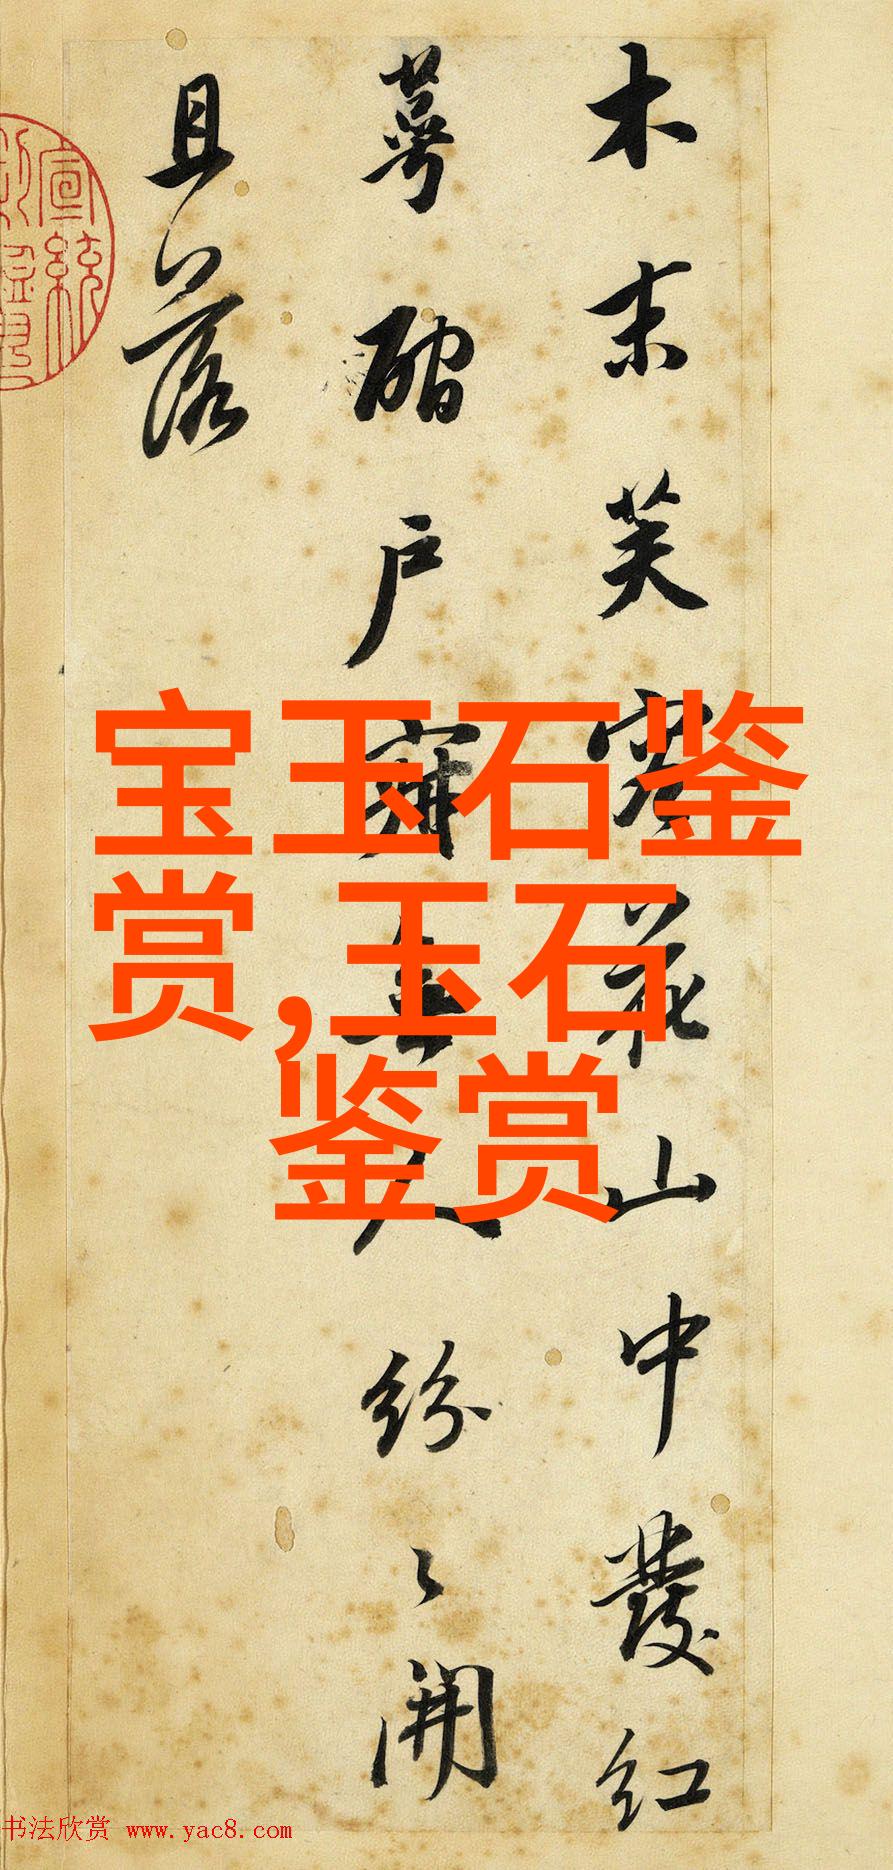 木末芙蓉花山中發紅
萼磵戶寂無人紛〻開
且落
宣統
宝玉石鉴
赏,玉石
鉴赏
书法欣赏 www.yac8.com